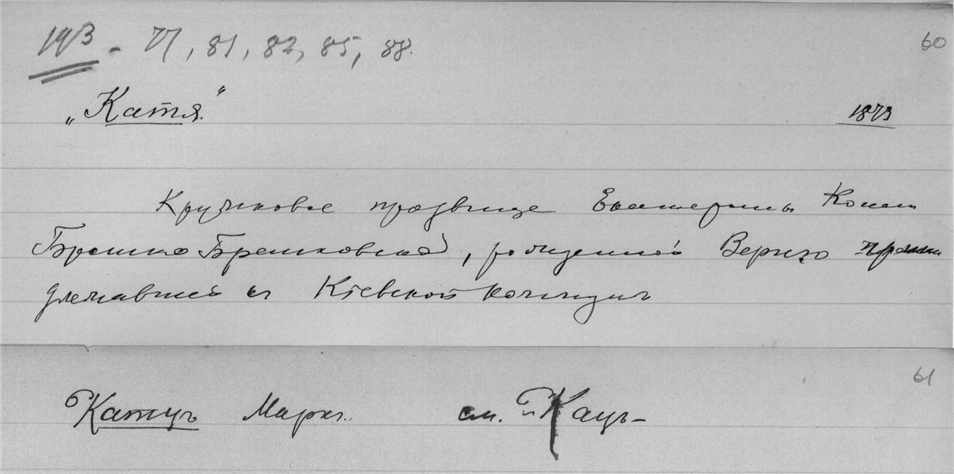 193 - 77, 81, 82, 85, 88.
60
„Катя“
1873
Кружковое прозвище Екатерины Конст
Брешко Брешковской, рожденной Вериго
длежавшей къ Кіевской коммунѣ
61
Катцъ Маркъ. см. Кацъ